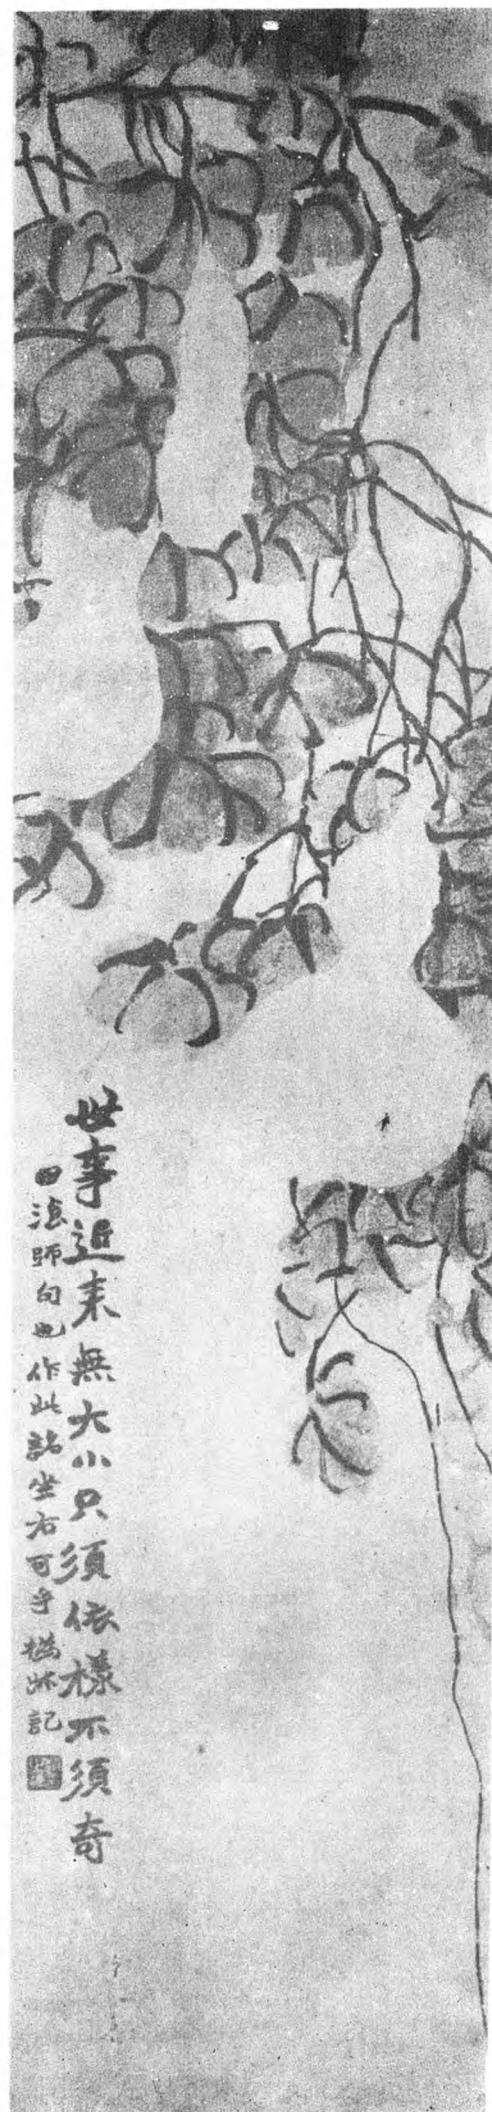 世事近来無大小只須依樣不須奇
師句也作此詺坐右可乎撝叔記